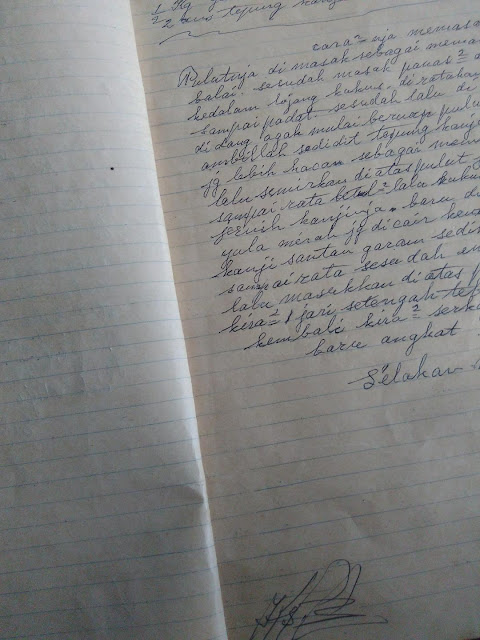 1 Kg
1/2 ons tepung kanji
cara² nja memasa
Pulutnja di masak sebagai mema
balai. sesudah masak panas²
kedalam lojang kukus. diratakan
sampai padat. sesudah lalu di
di dang agak mulai beruap pulu
ambillah sedidit tepung kanji
jg lebih
sebagai mem
lalu semirkan di atas pulut
sampai rata betul² lalu kukus
jernih kanjinja. baru
gula merah jg di cair
kanji santan garam sedi
sampai rata sesudah
lalu masukkan di atas
kira² 1 jari setengah
kembali kira²
baru angkat
Selakan